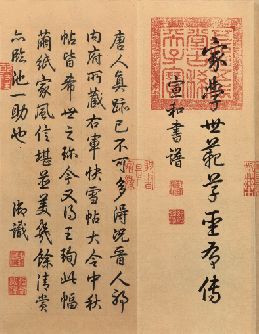 家學世範草聖有傳
宣和書譜
唐人真跡已不可多得況晉人耶
內府所藏右軍快雪帖大令中秋
帖皆希世之珍今又得王珣此幅
繭紙家風信堪並美幾餘清賞
亦臨池一助也 御識